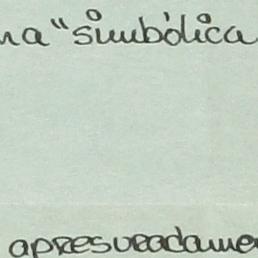 na "simbólica
apresuradame